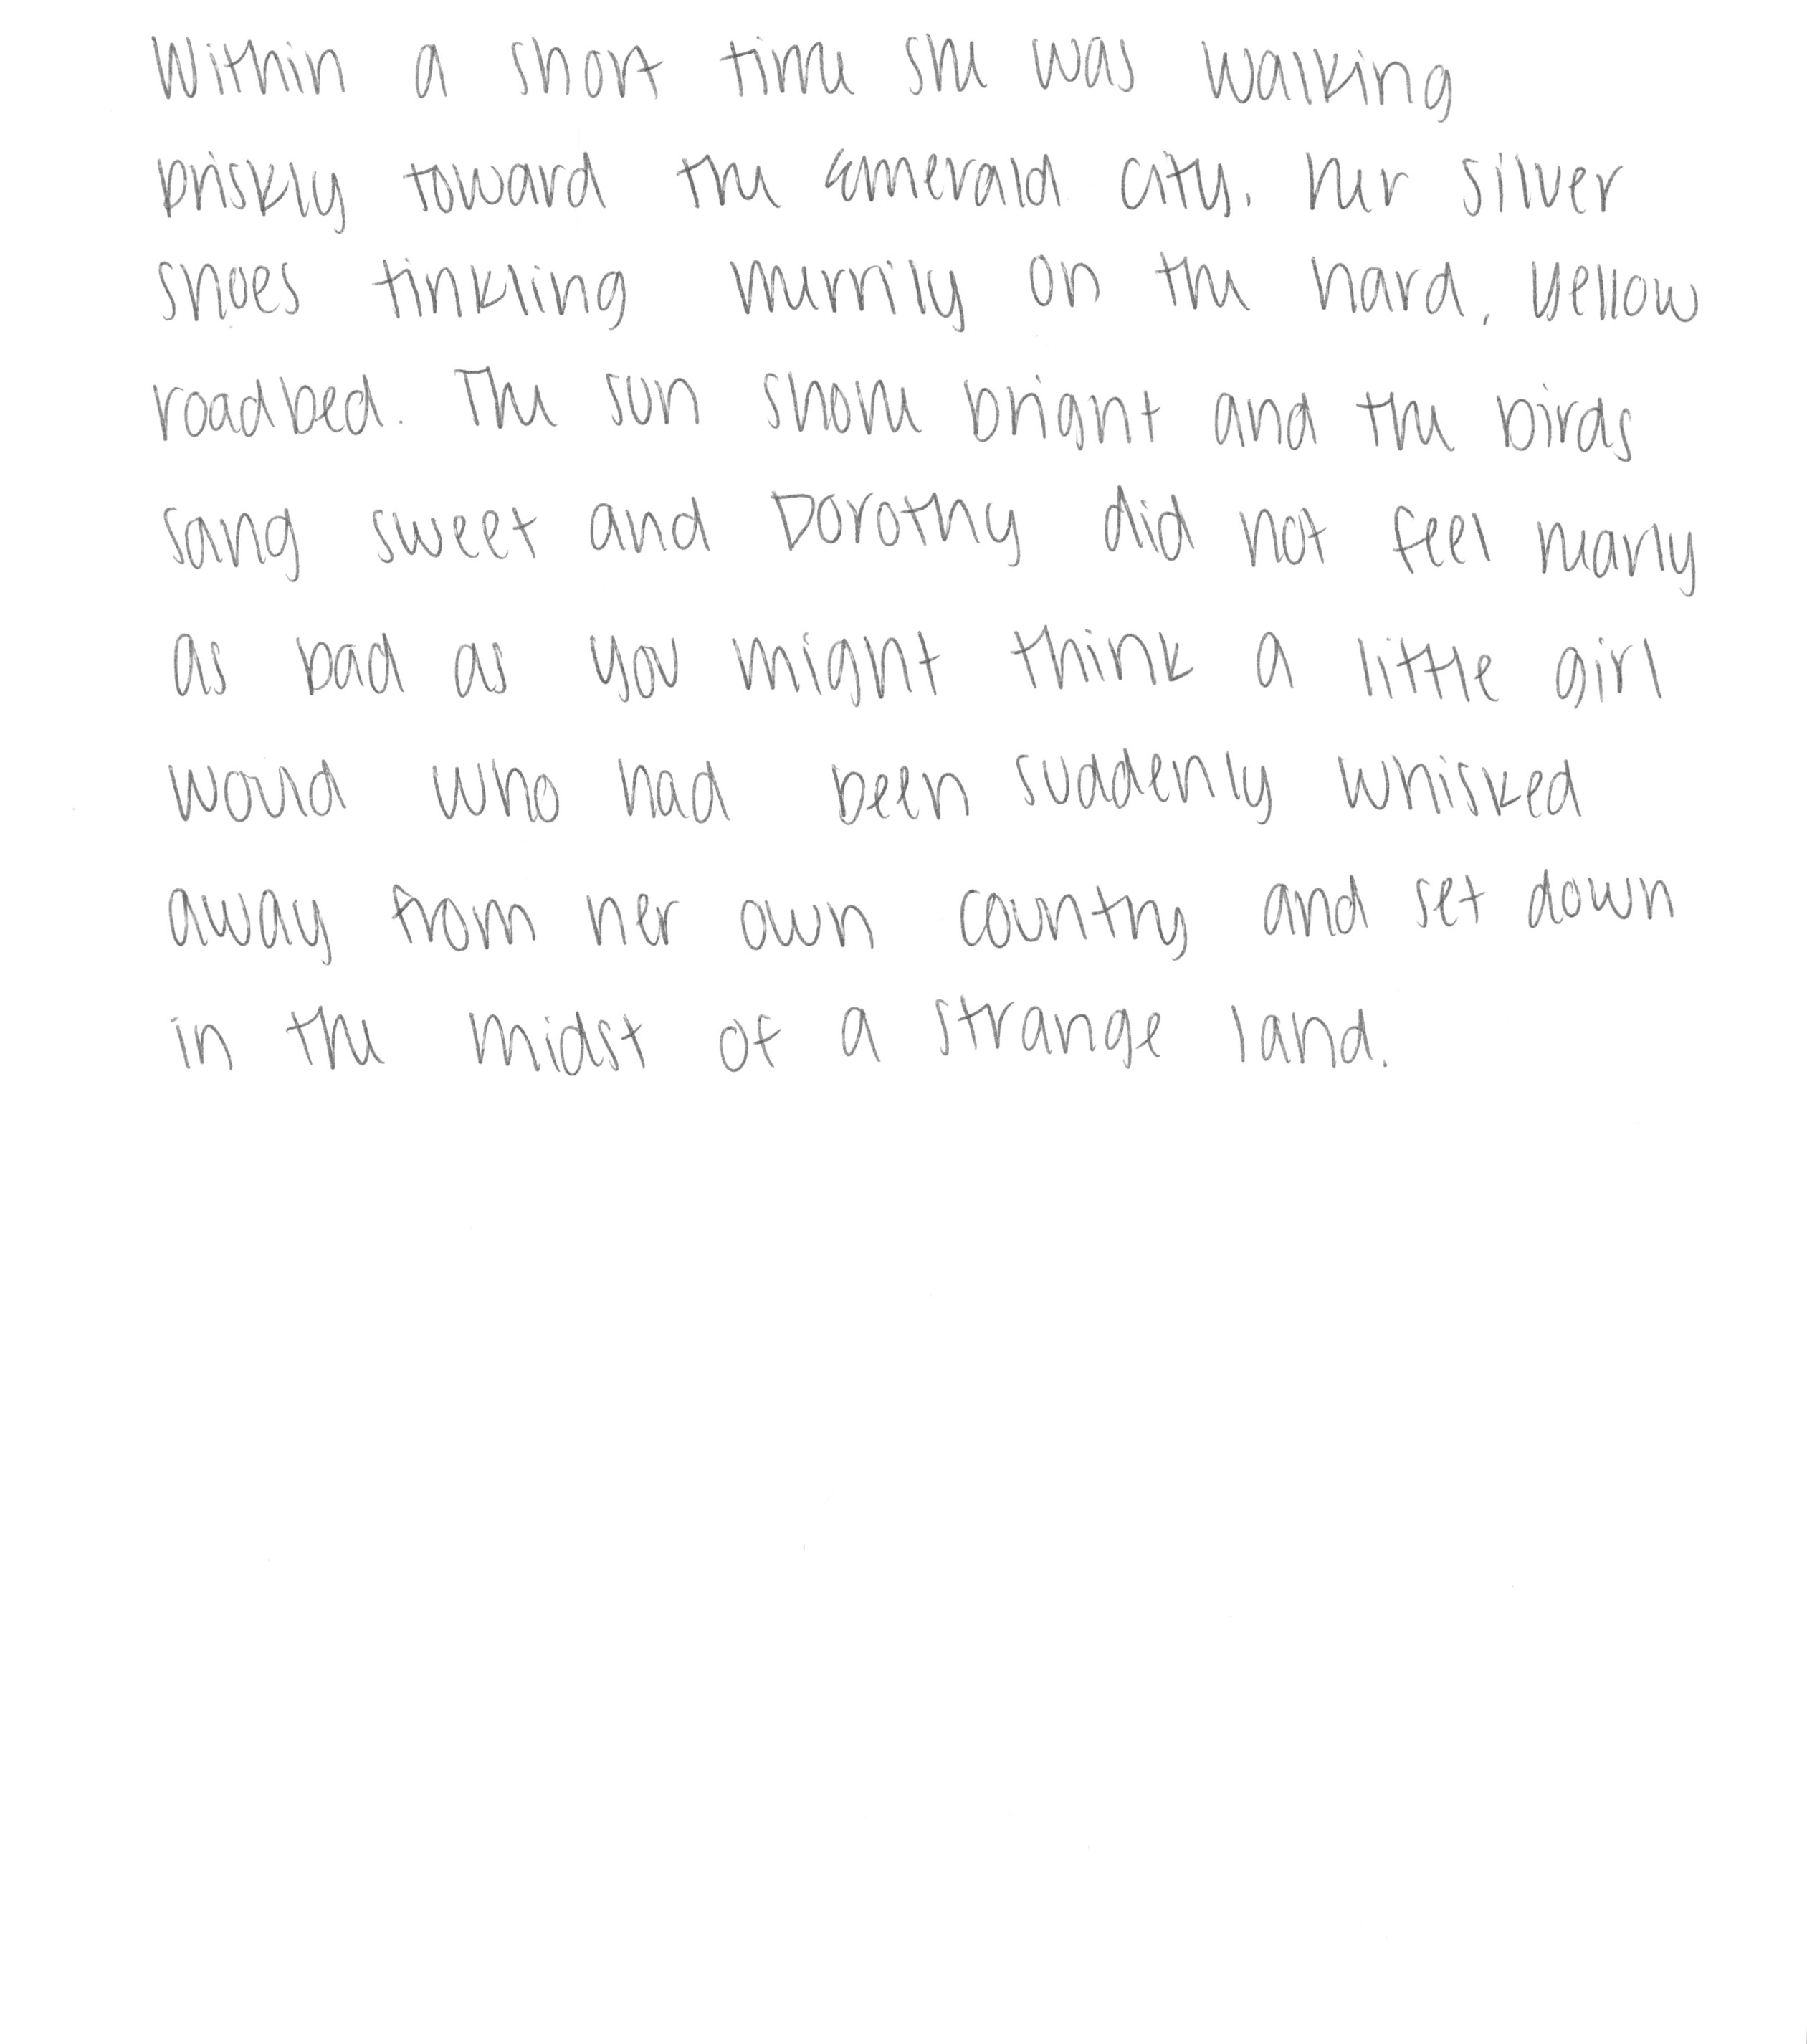 Within a short time she was walking
briskly toward the emerald city, her silver
shoes tinkling merrily on the hard, yellow
roadbed. The sun shone bright and the birds
sang sweet and Dorothy did not feel nearly
as bad as you might think a little girl
would who had been suddenly whisked
away from her own country and set down
in the midst of a strange land.